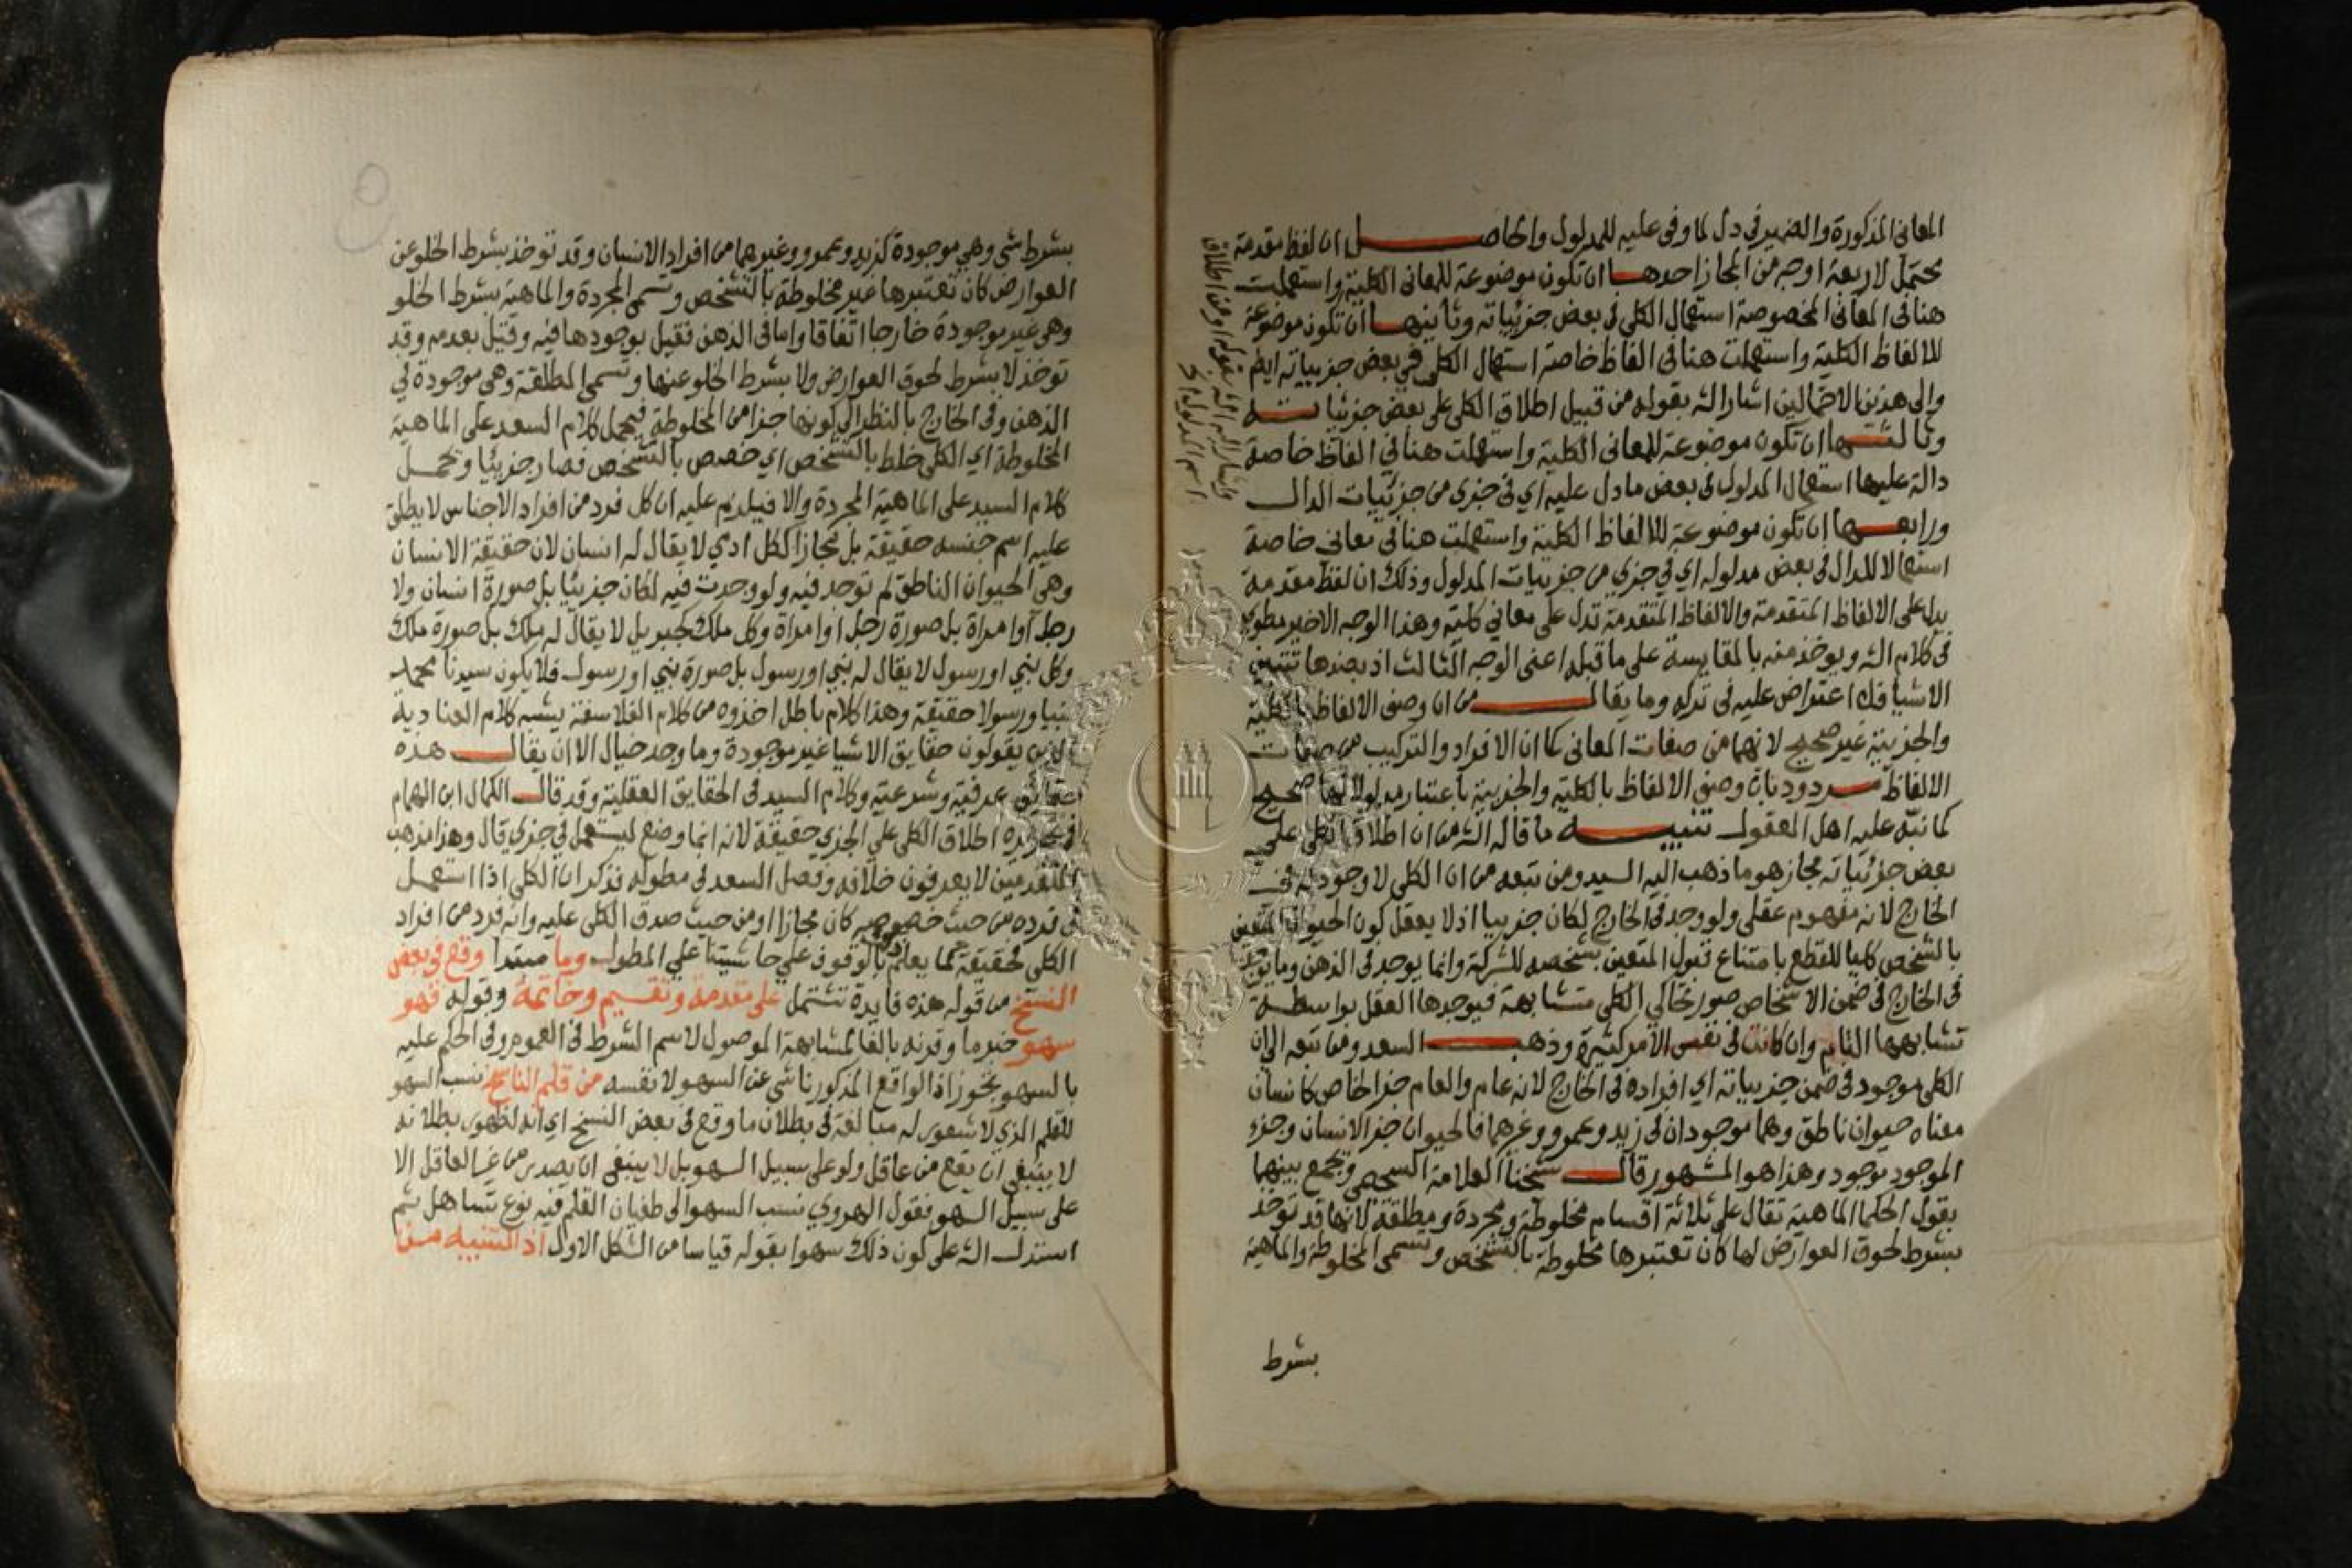 المعانى المذكورة والضمير فى دل لما وفى عليه للمدلول والحاصل ان لفظ مقدمة
محتمل لاربعة اوجه من المجاز احدها ان تكون موضوعة للمعانى الكلية واستعملت
هنا فى المعانى المخصوصة استعمال الكلى فى بعض جزئياته وثانيها ان تكون موضوعة
للالفاظ الكلية واستعملت هنا فى الفاظ خاصة استعمال الكلى في بعض جزيياته ايضا
والى هذين الاحتمالين اشار الش بقوله من قبيل اطلاق الكلى على بعض جزئياته
وثالثها ان تكون موضوعة للمعانى الكلية واستعملت هنا في الفاظ خاصة
دالة عليها استعمال المدلول فى بعض ما دل عليه اي فى جزى من جزئيات الدال
ورابعها ان تكون موضوعة للالفاظ الكلية واستعملت هنا في معانى خاصة
استعمالا للدال فى بعض مدلوله اي في جزي من جزييات المدلول وذلك ان لفظ مقدمة
يدل على الالفاظ المتقدمة والالفاظ المتقدمة تدل على معاني كلية وهذا الوجه الاخير مطوى
فى كلام الش ويوخذ منه بالمقايسة على ما قبله اعنى الوجه الثالث اذ بضدها تتبين
الاشيا فلا اعتراض عليه فى تركه وما يقال من ان وصف الالفاظ بالكلية
والجزيية غير صحيح لانهما من صفات المعانى كما ان الافراد والتركيب من صفات
الالفاظ مردود بان وصف الالفاظ بالكلية والجزيية باعتبار مدلولاتها صحيح
كما نبه عليه اهل المعقول تنبيه ما قاله الش من ان اطلاق الكلى على
بعض جزئياته مجاز هو ما ذهب اليه السيد ومن تبعه من ان الكلى لا وجود له فى
الخارج لانه مفهوم عقلى ولو وجد فى الخارج لكان جزييا اذ لا يعقل كون الحيوان المتعين
بالتشخص كليا للقطع بامتناع قبول المتعين بشخصه للشركة وانما يوجد فى الذهن وما يوجد
فى الخارج فى ضمن الاشخاص صور تحاكي الكلى متشابهة فيوجدها العقل بواسطة
تشابهها التام وان كانت فى نفس الامر كثيرة وذهب السعد ومن تبعه الى ان
الكلى موجود فى ضمن جزيياته اي افراده فى الخارج لانه عام والعام جزا الخاص كانسان
معناه حيوان ناطق وهما موجودان فى زيد وعمرو وغيرهما فالحيوان جزا الانسان وجزء
الموجود موجود وهذا هو المشهور قال شيخنا العلامة السحيمى ويجمع بينهما
بقول الحكما الماهية تقال على ثلاثة اقسام مخلوطة ومجردة ومطلقة لانها قد توخذ
بشرط لحوق العوارض لها كان تعتبرها مخلوطة بالتشخص وتسمى المخلوطة والماهية
بشرط
واشار اليه الش بقوله او من اطلاق
اسم المدلول
بشرط شى وهي موجودة كزيد وعمرو وغيرهما من افراد الانسان وقد توخذ بشرط الخلو عن
العوارض كان تعتبرها غير مخلوطة بالتشخص وتسمى المجردة والماهية بشرط الخلو
وهى غير موجودة خارجا اتفاقا واما فى الذهن فقيل بوجودها فيه وقيل بعدمه وقد
توخذ لا بشرط لحوق العوارض ولا بشرط الخلو عنها وتسمى المطلقة وهى موجودة في
الذهن وفى الخارج بالنظر الى كونها جزا من المخلوطة فيحمل كلام السعد على الماهية
المخلوطة اي الكلى خلط بالتشخص اي خصص بالتشخص فصار جزييا ويحمل
كلام السيد على الماهية المجردة والا فيلزم عليه ان كل فرد من افراد الاجناس لا يطلق
عليه اسم جنسه حقيقة بل مجازا فكل ادمي لا يقال له انسان لان حقيقة الانسان
وهى الحيوان الناطق لم توجد فيه ولو وجدت فيه لكان جزييا بل صورة انسان ولا
رجل او امراة بل صورة رجل او امراة وكل ملك كجبريل لا يقال له ملك بل صورة ملك
وكل نبي او رسول لا يقال له نبي او رسول بل صورة نبي او رسول فلا يكون سيدنا محمد
نبيا ورسولا حقيقة وهذا كلام باطل اخذوه من كلام الفلاسفة يشبه كلام العنادية
الذين يقولون حقايق الاشيا غير موجودة وما وجد خيال الا ان يقال هذه
حقايق عرفية وشرعية وكلام السيد فى الحقايق العقلية وقد قال الكمال ابن الهمام
فى تحريره اطلاق الكلى علي الجزي حقيقة لانه انما وضع ليستعمل في جزي قال وهذا مذهب
المتقدمين لا يعرفون خلافه وفصل السعد فى مطوله فذكر ان الكلى اذا استعمل
فى فرده من حيث خصوصه كان مجازا او من حيث صدق الكلى عليه وانه فرد من افراد
الكلى فحقيقة كما يعلم بالوقوف علي حاشيتنا علي المطول وما مبتدا وقع فى بعض
النسخ من قوله هذه فايدة تشتمل على مقدمة وتقسيم وخاتمة وقوله فهو
سهو خبر ما وقرنه بالفا لمشابهة الموصول لاسم الشرط فى العموم وفى الحكم عليه
بالسهو تجوز اذ الواقع المذكور ناشى عن السهو لا نفسه من قلم الناسخ نسب السهو
للقلم الذي لا شعور له مبالغة فى بطلان ما وقع فى بعض النسخ اي انه لظهور بطلانه
لا ينبغى ان يقع من عاقل ولو على سبيل السهو بل لا ينبغى ان يصدر من غير العاقل الا
على سبيل السهو فقول الهروي نسب السهو الى طغيان القلم فيه نوع تساهل ثم
استدل الش على كون ذلك سهوا بقوله قياسا من الشكل الاول اذ التنبيه من